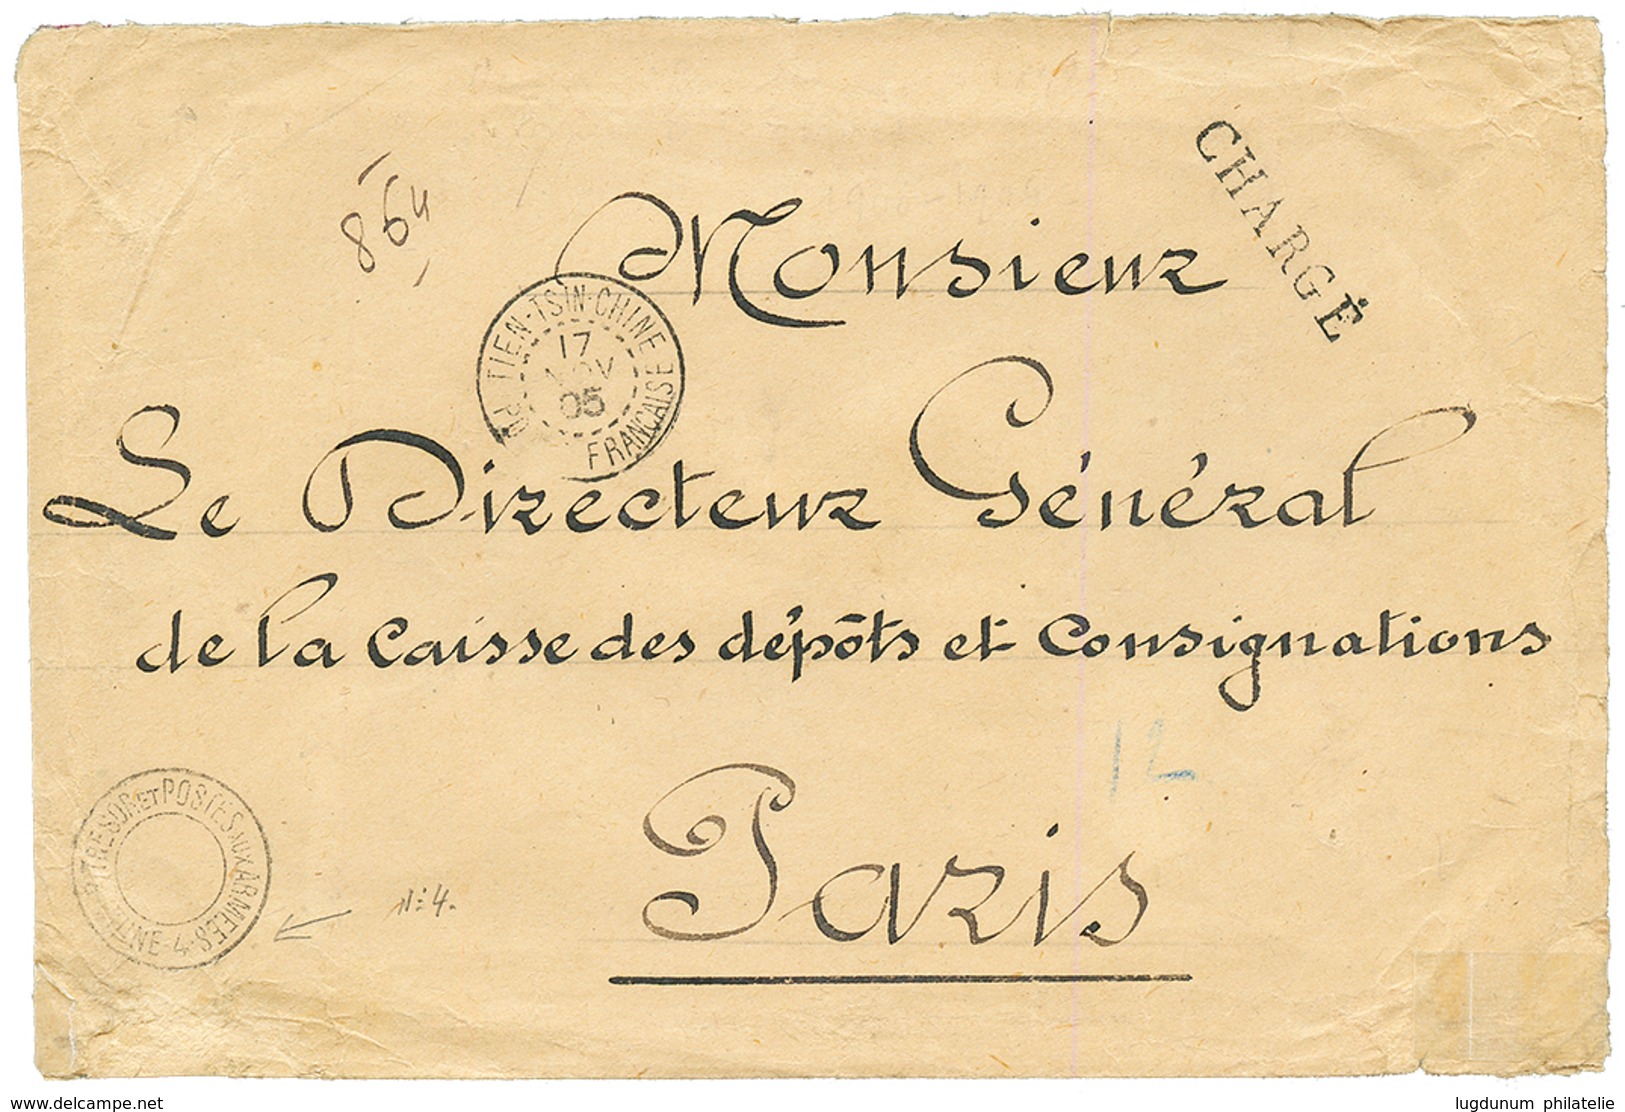 CHARGÉ
864
Monsieur
TIEN-TSIN-CHINE
17
NOV
05
FRANÇAISE
Le Directeur Général
de la Caisse des dépôts et Consignations
12
Paris
TRESOR ET POSTES AUX ARMEES
CHINE-4
N: 4.
delcampe.net
lugdunum philatelie